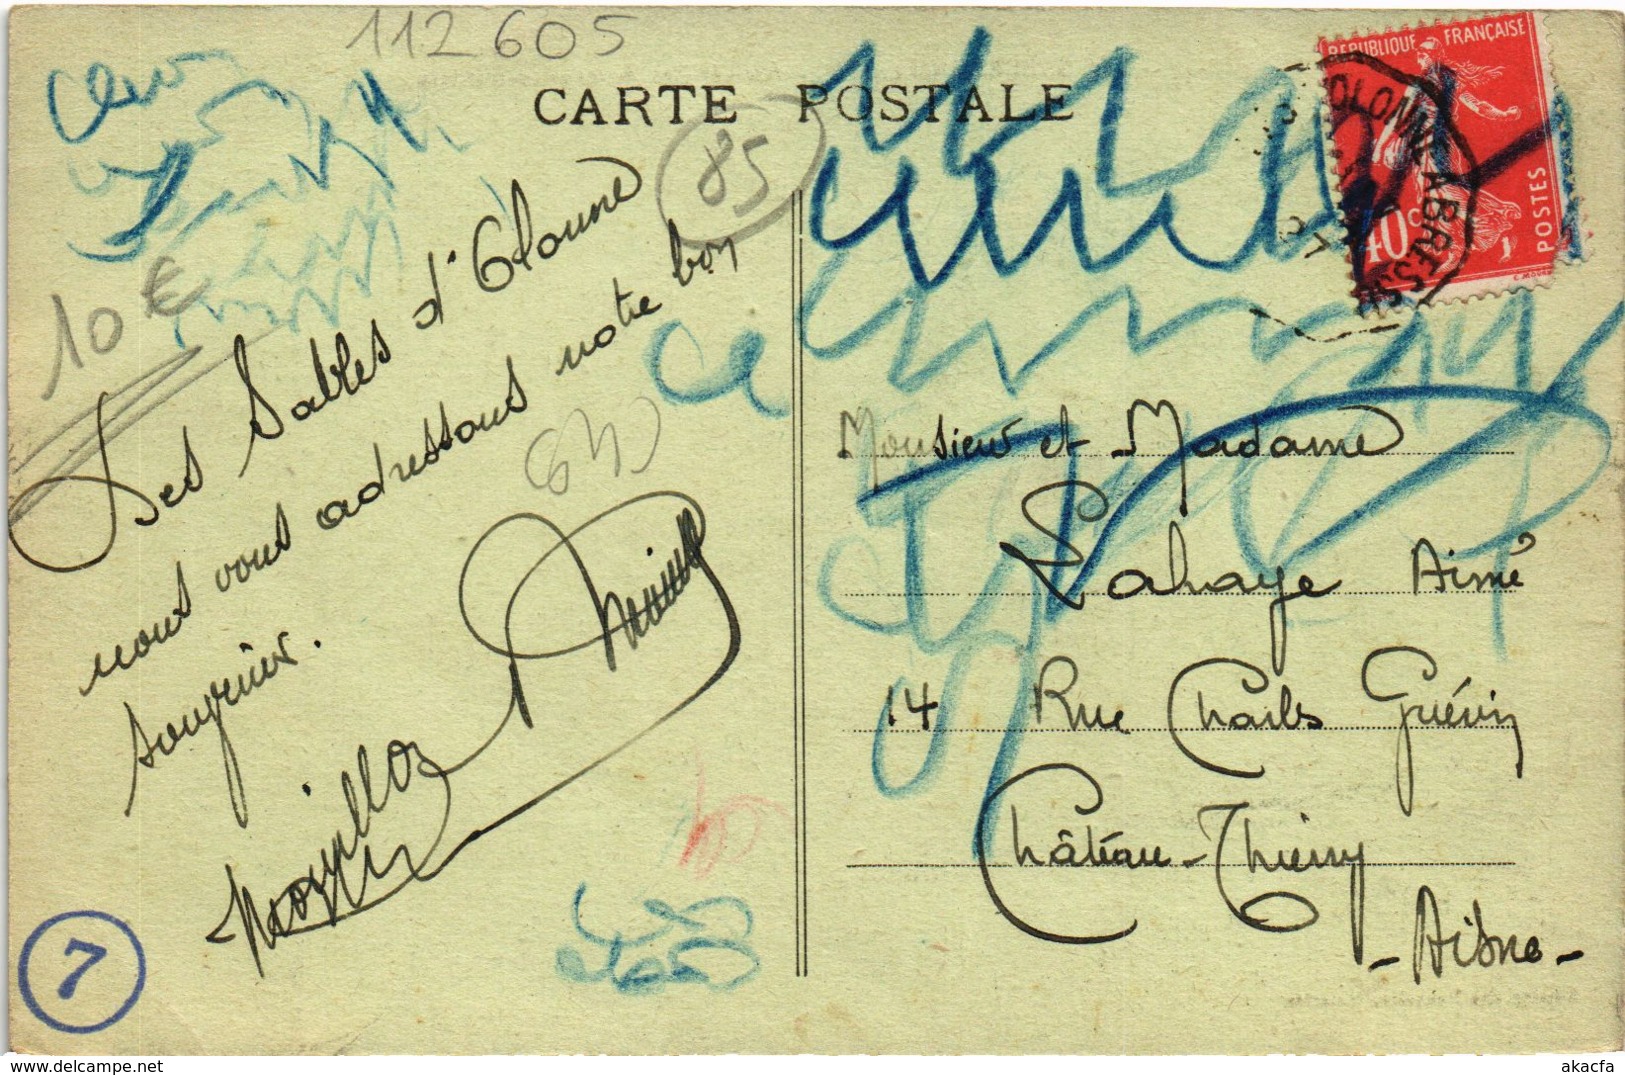 112605
CARTE POSTALE
85
10 €
Des Sables d'Olonne
nous vous adressons notre bon
souvenir.
REPUBLIQUE FRANÇAISE
POSTES
40 c
OLONNE À BRESSUI
Monsieur et Madame
Lahaye Aimé
14 Rue Charles Guérin
Château-Thierry
- Aisne -
7
akacfa